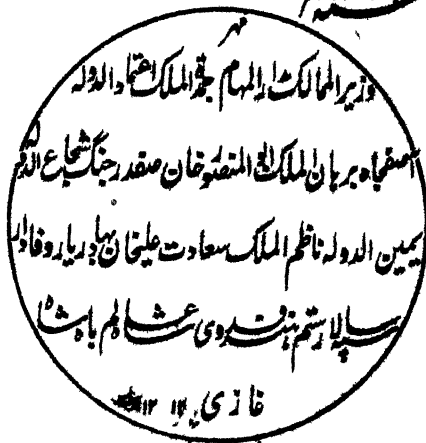 مہر
وزیر الممالک مدار المہام جمدۃ الملک اعتماد الدولہ
آصفجاہ برہان الملک ابو المنصور خان صفدر جنگ شجاع الدولہ
یمین الدولہ ناظم الملک سعادت علیخان بہادر یار وفادار
سپہ سالار رستم ہند فدوی شاہ عالم بادشاہ
غازی ۱۲۱۲